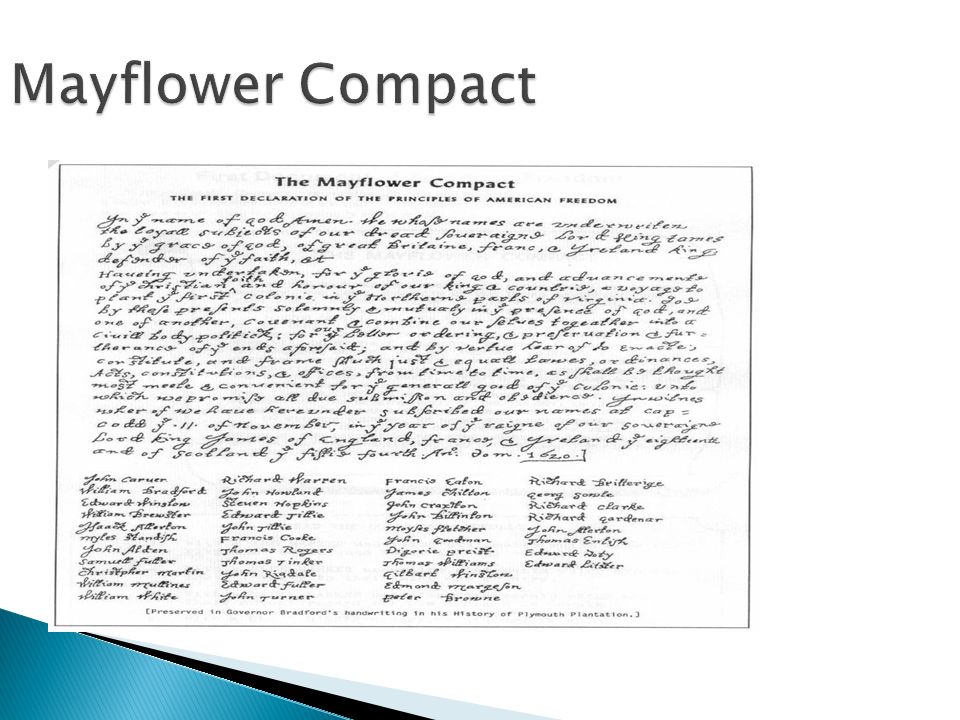 Mayflower Compact
The Mayflower Compact
THE FIRST DECLARATION OF THE PRINCIPLES OF AMERICAN FREEDOM
In yͤ name of god Amen. We whose names are underwriten
the loyall subjects of our dread soveraigne Lord King James
by yͤ grace of god, of great Britaine, franc, & Ireland king
defender of yͤ faith, &c
Haveing undertaken, for yͤ glorie of god, and advancemente
of yͤ christian faith and honour of our king & countrie, a voyage to
plant yͤ first colonie in yͤ Northerne parts of Virginia. doe
by these presents solemnly & mutualy in yͤ presence of god, and
one of another, covenant & combine our selves togeather into a
civill body politick; for our better ordering, & preservation & fur=
therance of yͤ ends aforesaid; and by vertue hearof to enacte,
constitute, and frame such just & equall lawes, ordinances,
Acts, constitutions, & offices, from time to time, as shall be thought
most meete & convenient for yͤ generall good of yͤ Colonie: unto
which we promise all due submission and obedience. In witnes
wherof we have hereunder subscribed our names at cap=
codd yͤ .11. of November, in yͤ year of yͤ raigne of our soveraigne
Lord king James of England, france, & Ireland yͤ eighteenth
and of scotland yͤ fiftie fourth. An°: dom. 1620.]
John Carver Richard Warren Francis Eaton Richard Britterige
William Bradford John Howland James Chilton Georg Soule
Edward Winslow Steven Hopkins John Craxton Richard Clarke
William Brewster Edward Tillie John Billinton Richard Gardenar
Isaack Allerton John Tillie Moyses Fletcher John Allerton
Myles Standish Francis Cooke John Goodman Thomas English
John Alden Thomas Rogers Digorie Preist Edward Doty
Samuell Fuller Thomas Tinker Thomas Williams Edward Litster
Christopher Martin John Rigdale Gilbart Winslow
William Mullines Edward Fuller Edmond Margeson
William White John Turner Peter Browne
[Preserved in Governor Bradford's handwriting in his History of Plymouth Plantation.]